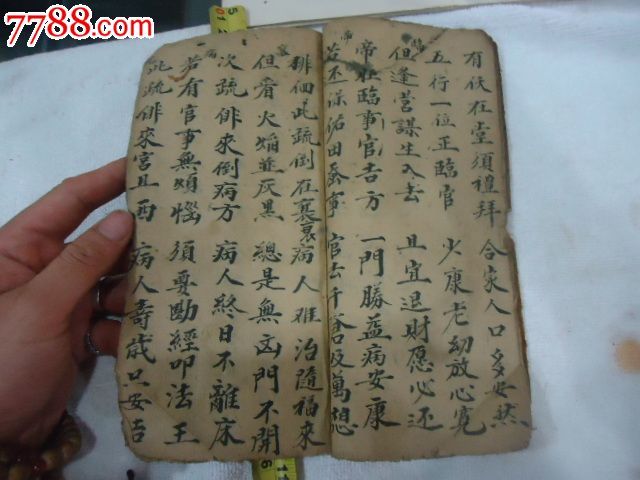 7788.com
有伏在堂須禮拜 合家人口多安然
五行一位正臨官 火康老幼放心寬
臨
但逢营謀生入去 且宜退財愿心还
帝
帝旺臨事官吉方 一門勝益病安康
若不保佑田蚕事 官去千倉及萬想
衰
徘徊此疏倒在襄衰 病人难治隨福來
但看火焰並灰黑 總是無凶門不開
病
次疏俳來倒病方 病人終日不離床
若有官事無煩惱 須要勸經叩法王
此疏俳來宮且西 病人壽歲只安吉